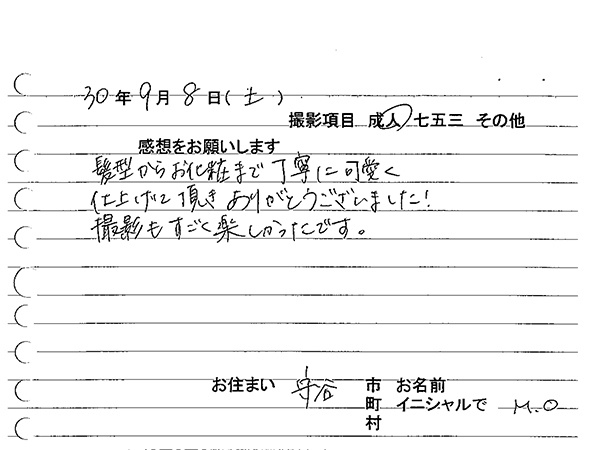 30年9月8日(土)
撮影項目 成人 七五三 その他
感想をお願いします
髪型からお化粧まで丁寧に可愛く
仕上げて頂きありがとうございました!
撮影もすごく楽しかったです。
お住まい 守谷 市 お名前
町 イニシャルで M.O
村